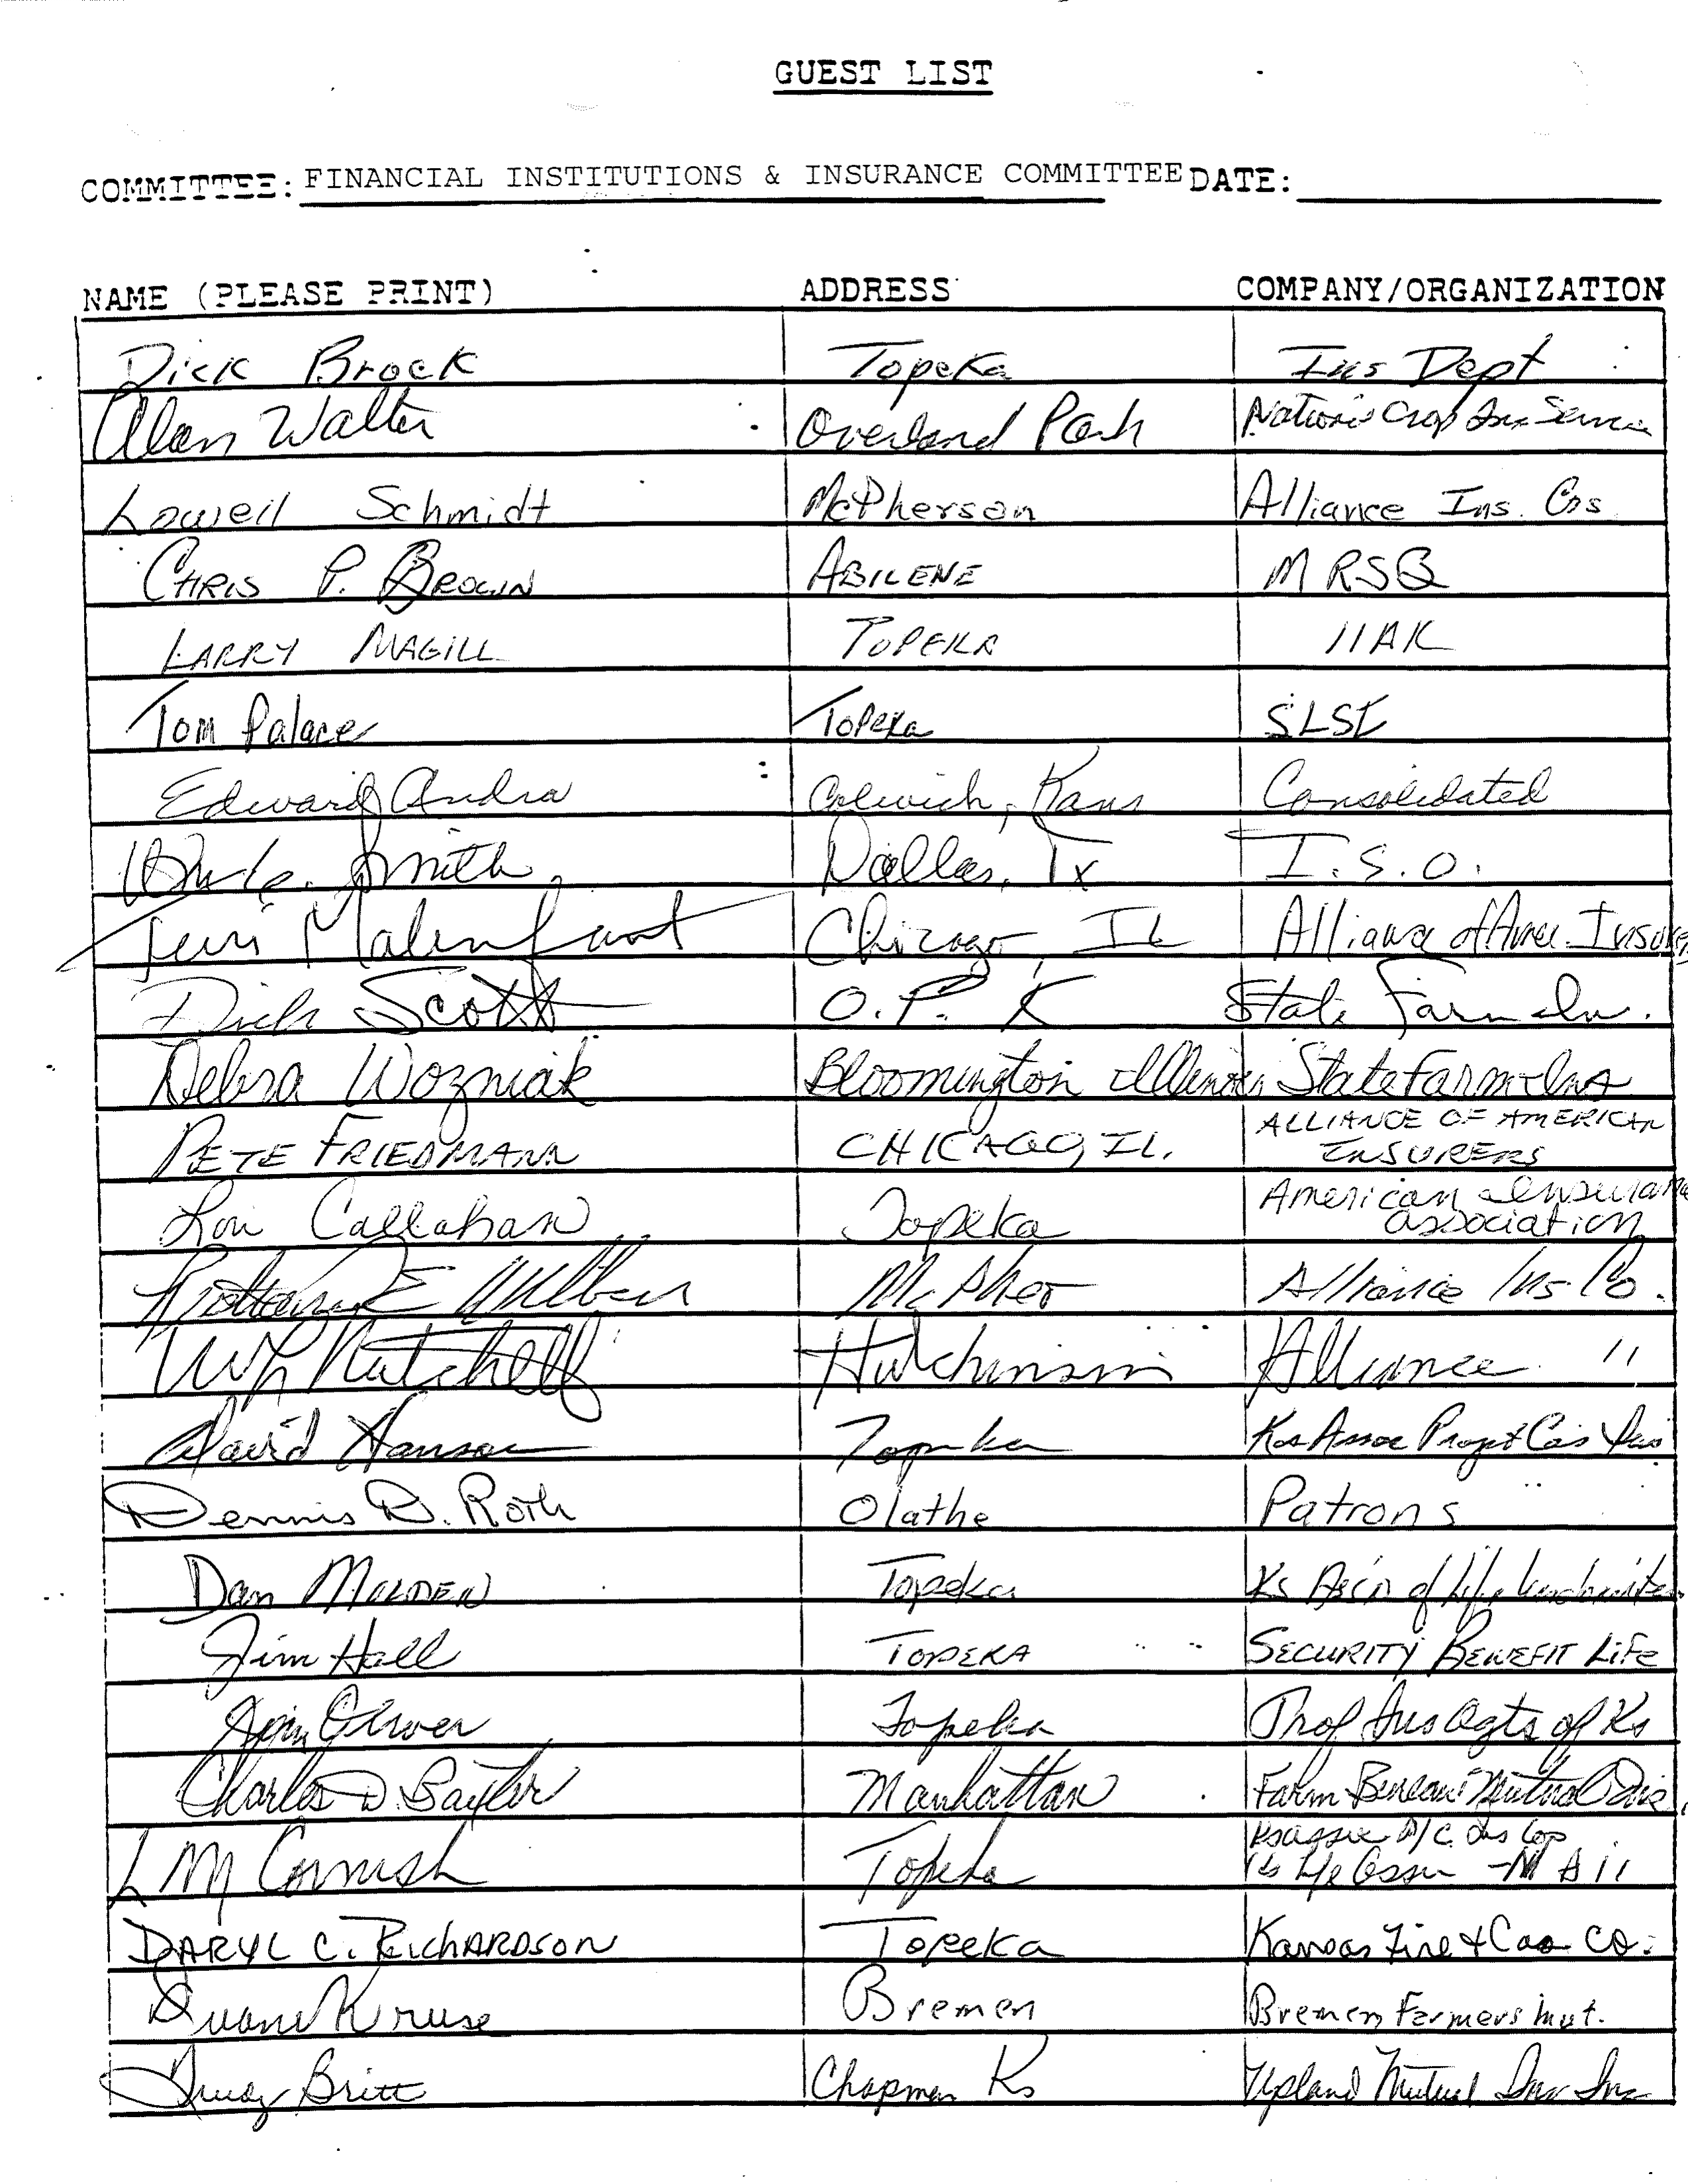 GUEST LIST
COMMITTEE: FINANCIAL INSTITUTIONS & INSURANCE COMMITTEE DATE:
NAME (PLEASE PRINT) ADDRESS COMPANY/ORGANIZATION
Dick Brock Topeka Ins Dept
Alan Walter Overland Park Crop Ins Service
Lowell Schmidt McPherson Alliance Ins. Cos
CHRIS P. BROWN ABILENE
LARRY MAGILL TOPEKA IIAK
Tom Palace Topeka
Edward Andra Colwich, Kans Consolidated
Smith Dallas, Tx I.S.O.
Terri Malenfant Chicago, IL Alliance of Amer. Insurers
Dick Scott O.P. K State Farm Ins.
Debra Wozniak Bloomington Illinois State Farm Ins
PETE FRIEDMANN CHICAGO, IL. ALLIANCE OF AMERICAN
INSURERS
Lori Callahan Topeka American Insurance
Association
E McPher Alliance Ins. Co.
Mitchell Hutchinson Alliance "
David Hanson Topeka Ks Assoc Prop & Cas
Dennis D. Roth Olathe Patrons
Dan MOLDEN Topeka Ks Ass'n of Life Underwriters
Jim Hall TOPEKA SECURITY BENEFIT LIFE
Jim Oliver Topeka Prof Ins Agts of Ks
Charles D. Manhattan Farm Bureau Mutual Ins.
L M Cornish Topeka P/C Ins Cos
Ks Life Assn
DARYL C. RICHARDSON Topeka Kansas Fire & Cas. Co.
Duane Kruse Bremen Bremen Farmers Mut.
Britt Chapman Ks Upland Mutual Ins Inc